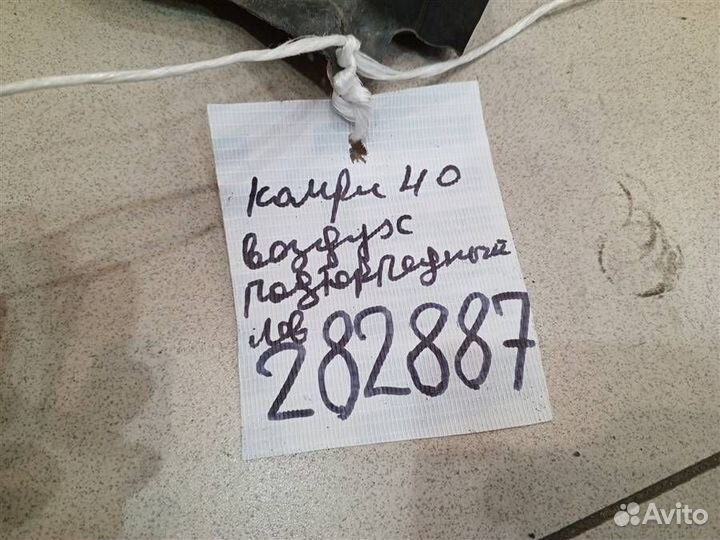 Камри 40
воздух
подторпедный
лев
282887
Avito